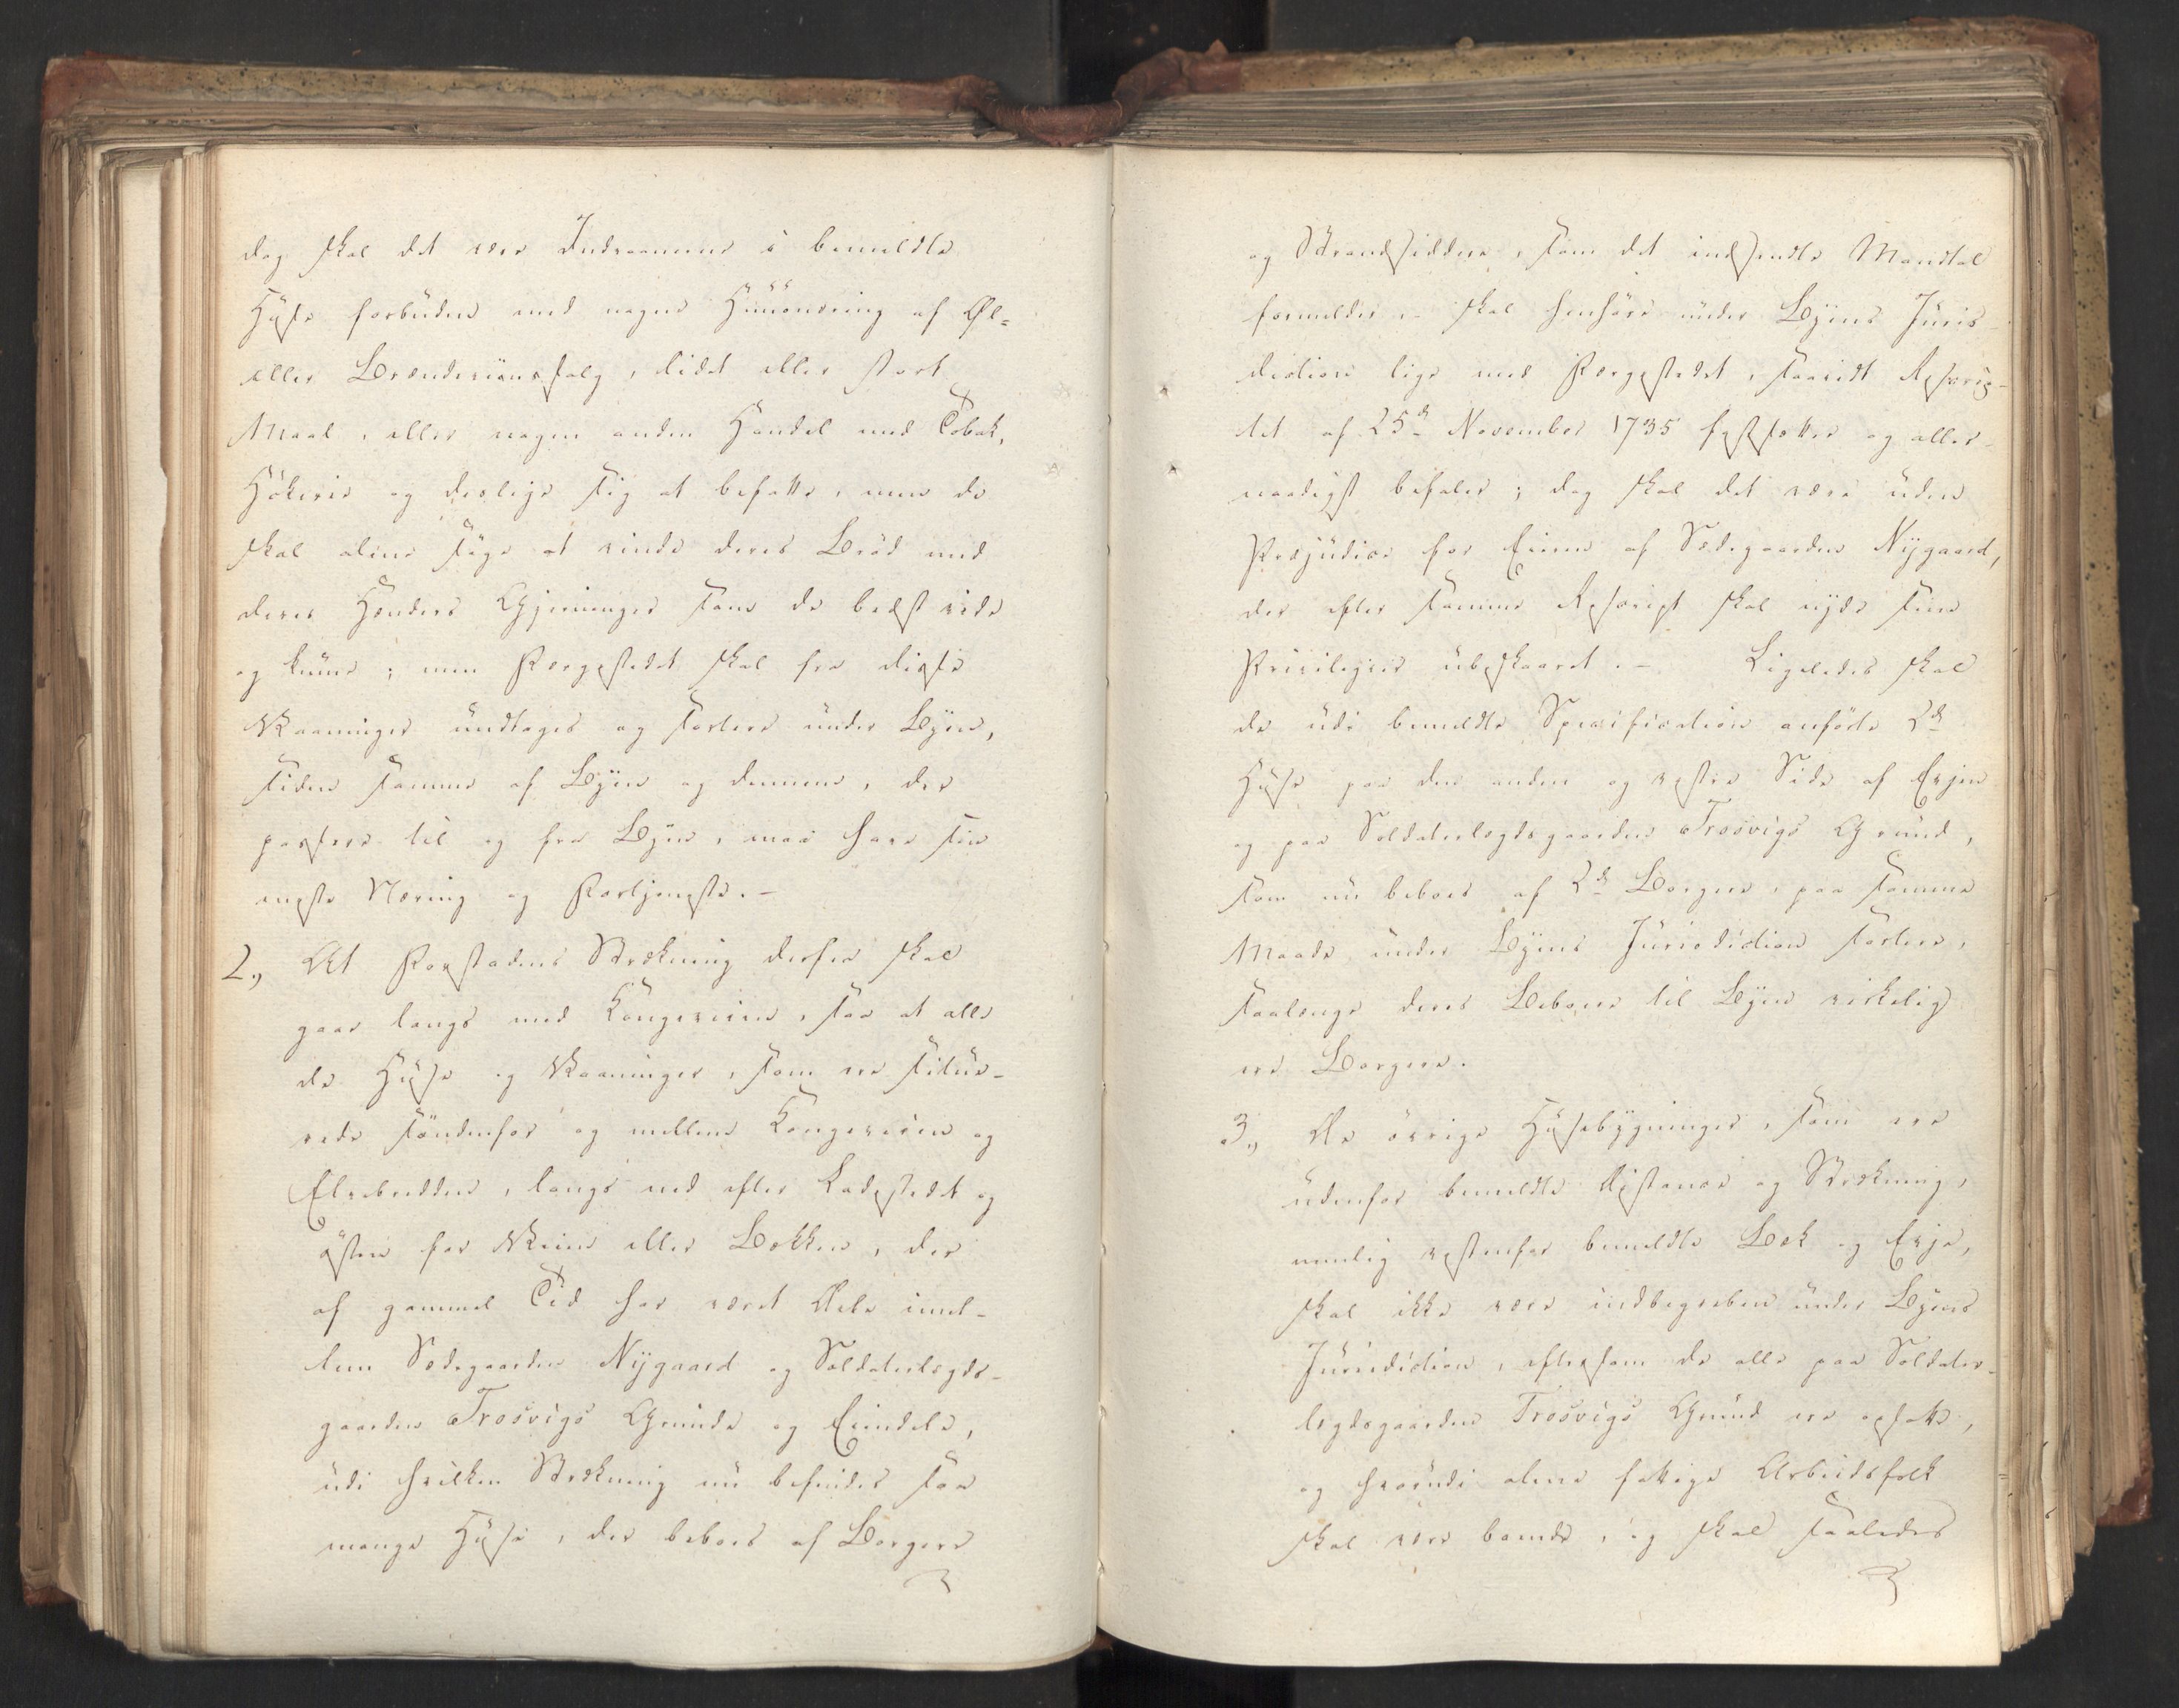 dog skal det være Indvaanerne i bemeldte
Huse forbuden med nogen Huusnæring af Øl-
eller Brændeviinssalg, lidet eller stort
Maal, eller nogen anden Handel med Tobak,
Høkerie og deslige sig at befatte, men de
skal alene søge at vinde deres Brød med
deres Hænders Gjerninger som de bedst vide
og kunne; men Færgestedet skal fra disse
Vaaninger undtages og sortere under Byen,
siden samme af Byen og dennem, der
passere til og fra Byen, maa have sin
meste Næring og Fortjeneste.-
2., At Forstadens Strekning derfra skal
gaae langs med Kongeveien, saa at alle
de Huse og Vaaninger, som ere situe-
rede søndenfor og mellem Kongeveien og
Elvebredden, langs ned efter Ladestedet og
østen for Veien eller Bekken, der
af gammel Tid har været Dele imel-
lem Sædegaarden Nygaard og Soldaterlegds-
gaarden Trosvigs Grunde og Eiendele,
udi hvilken Strekning nu befindes saa
mange Huse, der beboes af Borgere
og Strandsiddere, som det indsendte Mandtal
formelder, - skal henhøre under Byens Juris-
diction lige med Færgestedet, saavidt Rescrip-
tet af 25de November 1735 fastsætter og aller-
naadigst befaler; dog skal det være uden
Præjudice for Eieren af Sædegaarden Nygaard,
der efter samme Rescript skal nyde sine
Privilegier ubeskaaret. - Ligeledes skal
de udi bemeldte Specification anførte 2de
Huse paa den anden og vestre Side af Evjen
og paa Soldaterlegdsgaarden Trosvigs Grund,
som nu beboes af 2de Borgere, paa samme
Maade under Byens Jurisdiction sortere,
saalænge deres Beboere til Byen virkelig
ere Borgere.
3., De øvrige Husebygninger, som ere
udenfor bemeldte Distance og Strekning,
nemlig vestenfor bemeldte Bek og Evje,
skal ikke være indbegreben under Byens
Jurisdiction, eftersom de alle paa Soldater-
legdsgaarden Trosvigs Grund ere opsatte,
og hvorudi alene fattige Arbeidsfolk
skal være boende, og skal saaledes